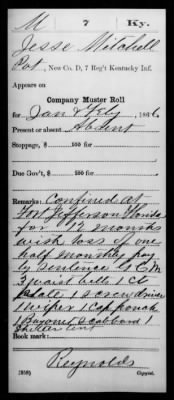 M 7 Ky.
Jesse Mitchell
Pvt, New Co. D, 7 Reg't Kentucky Inf.
Appears on
Company Muster Roll
for Jan & Feby, 1864.
Present or absent Absent
Stoppage, $ 100 for
Due Gov't, $ 100 for
Remarks: Confined at
Fort Jefferson Florida
for 12 months
with loss of one
half monthly pay
by sentence G C M
3 waist belts 1 C B
plate 1 screw driver
1 wiper 1 Cap pouch
1 Bayonet scabbard 1
shelter tent
Book mark:
Reynolds
(358) Copyist.